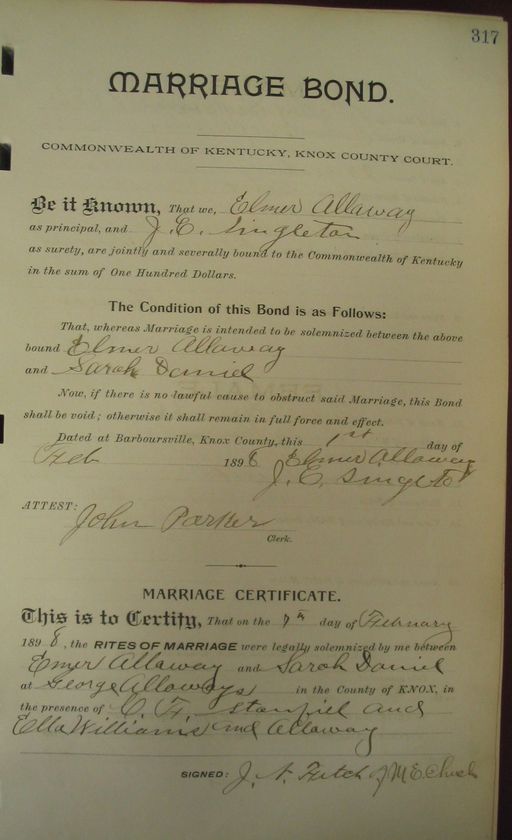 317
MARRIAGE BOND.
COMMONWEALTH OF KENTUCKY, KNOX COUNTY COURT.
Be it Known, That we, Elmer Allaway
as principal, and J. C. Singleton
as surety, are jointly and severally bound to the Commonwealth of Kentucky
in the sum of One Hundred Dollars.
The Condition of this Bond is as Follows:
That, whereas Marriage is intended to be solemnized between the above
bound Elmer Allaway
and Sarah Daniel
Now, if there is no lawful cause to obstruct said Marriage, this Bond
shall be void; otherwise it shall remain in full force and effect.
Dated at Barboursville, Knox County, this 1st day of
Feb 1898 Elmer Allaway
J. C. Singleto
ATTEST: John Parker
Clerk.
MARRIAGE CERTIFICATE.
This is to Certify, That on the 7th day of February
1898, the RITES OF MARRIAGE were legally solemnized by me between
Emer Allaway and Sarah Daniel
at George Allaways in the County of KNOX, in
the presence of C. F. Stanfill and
Ella Williams and Allaway
SIGNED: J. N. Fitch of M. E. Church